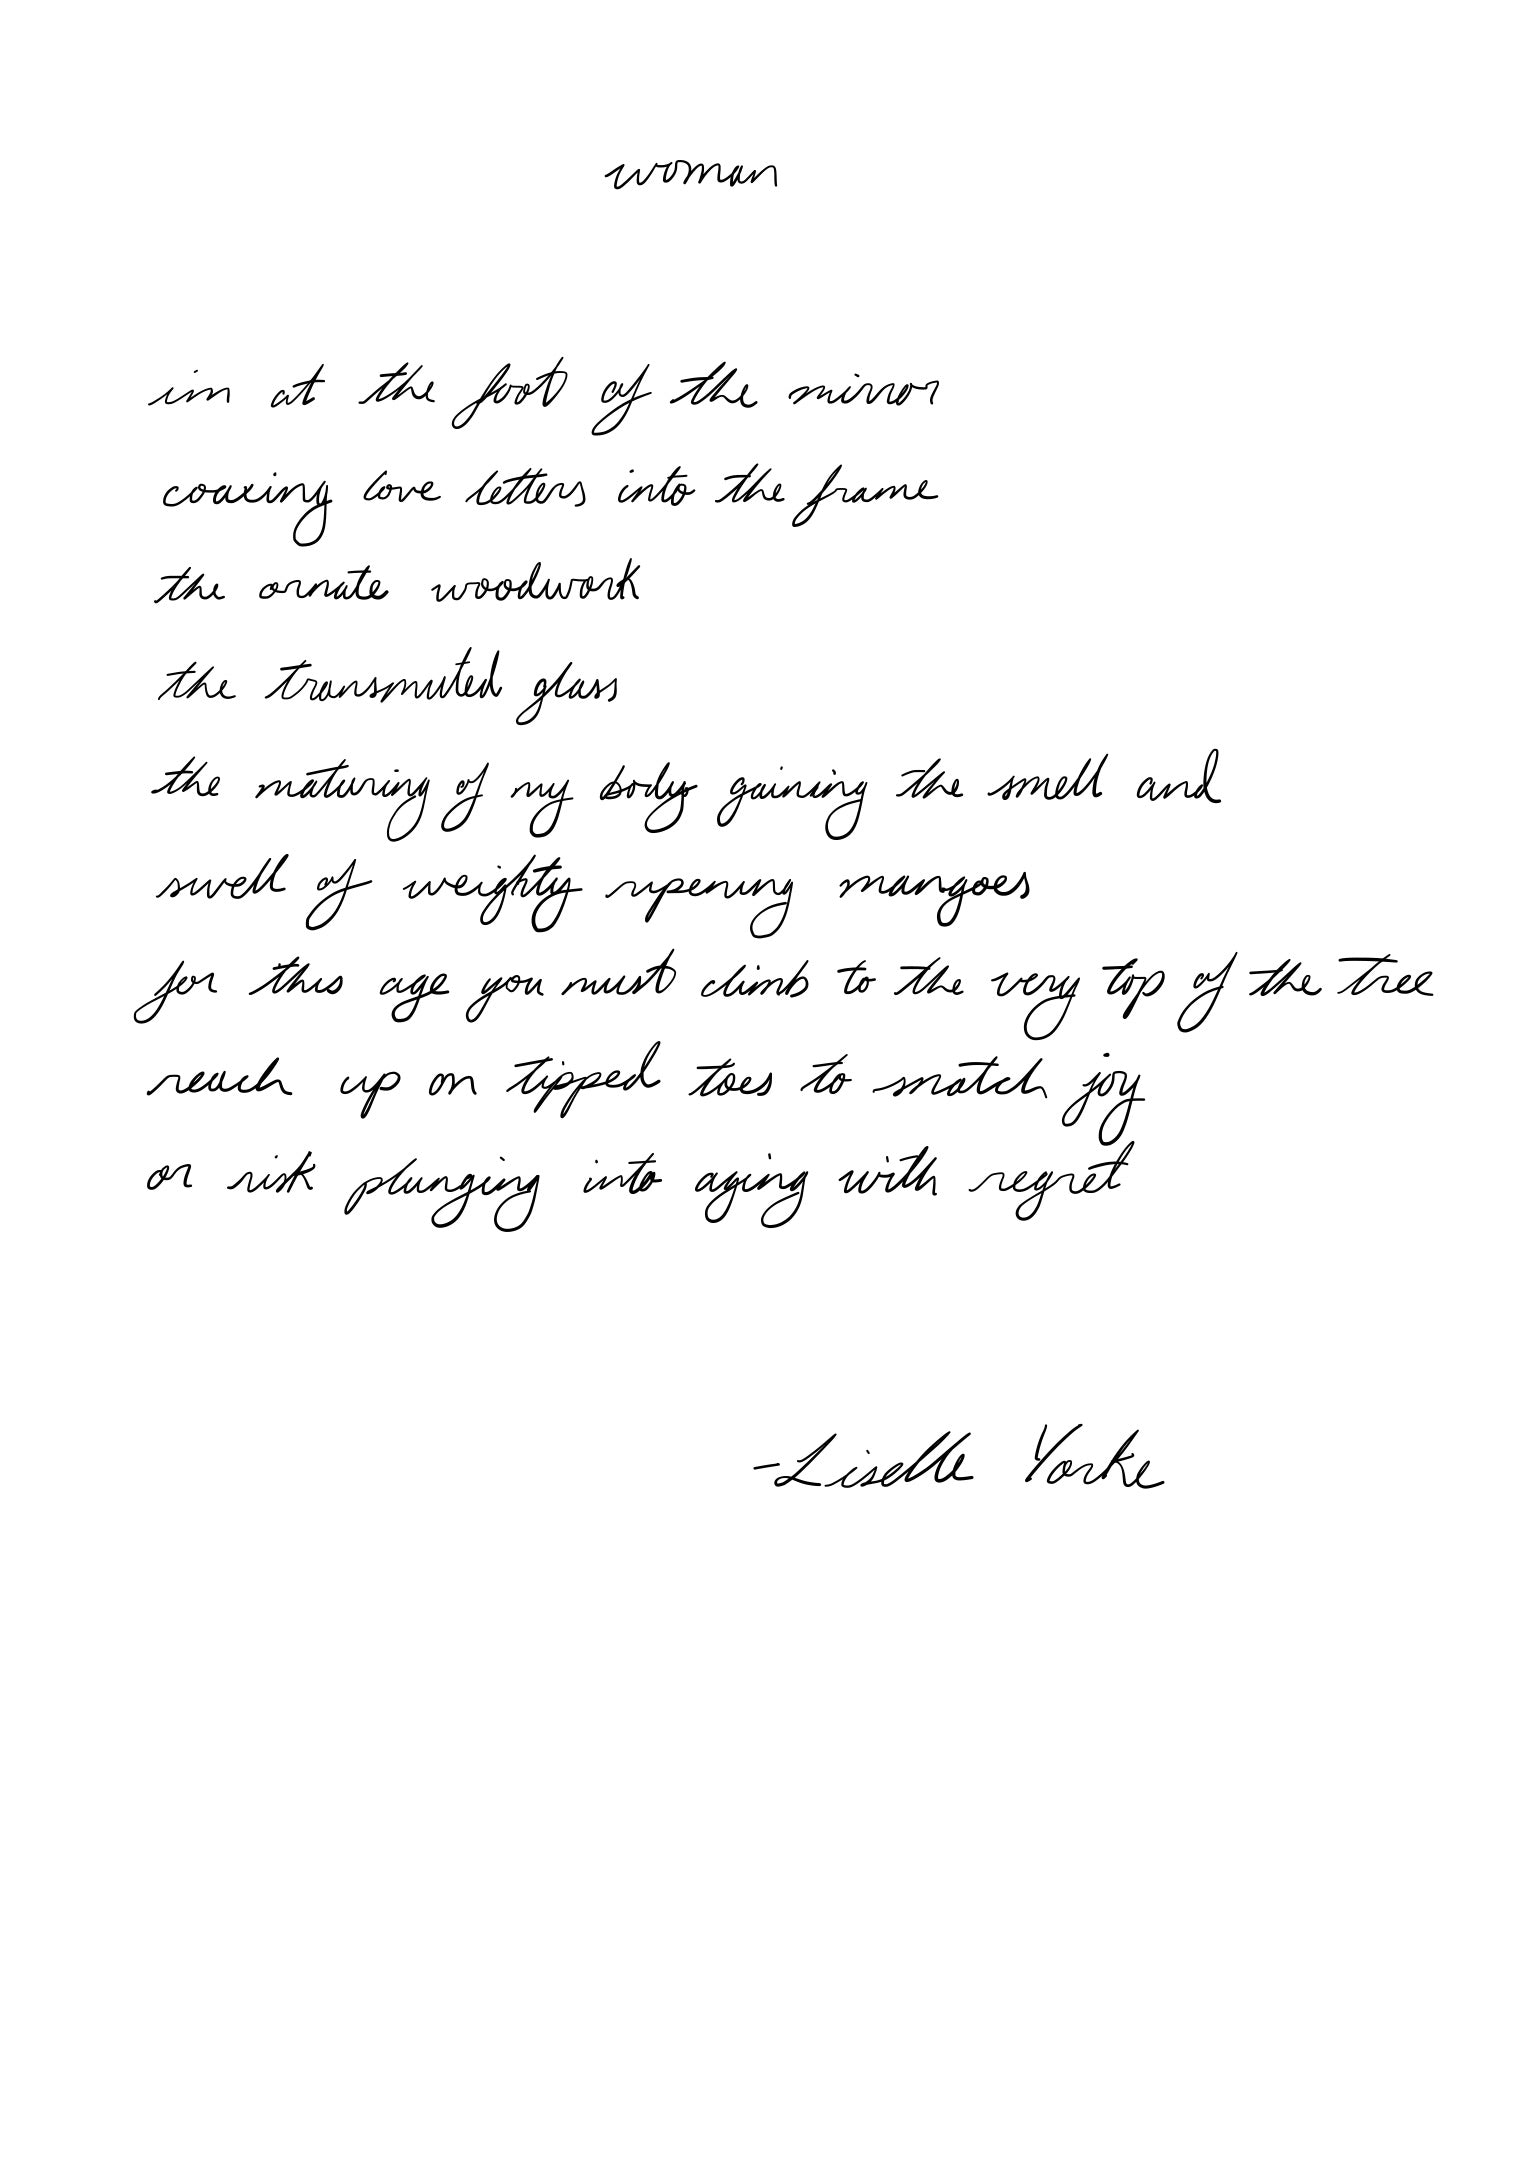 woman
im at the foot of the mirror
coaxing love letters into the frame
the ornate woodwork
the transmuted glass
the maturing of my body gaining the smell and
swell of weighty ripening mangoes
for this age you must climb to the very top of the tree
reach up on tipped toes to snatch joy
or risk plunging into aging with regret
-Liselle Yorke